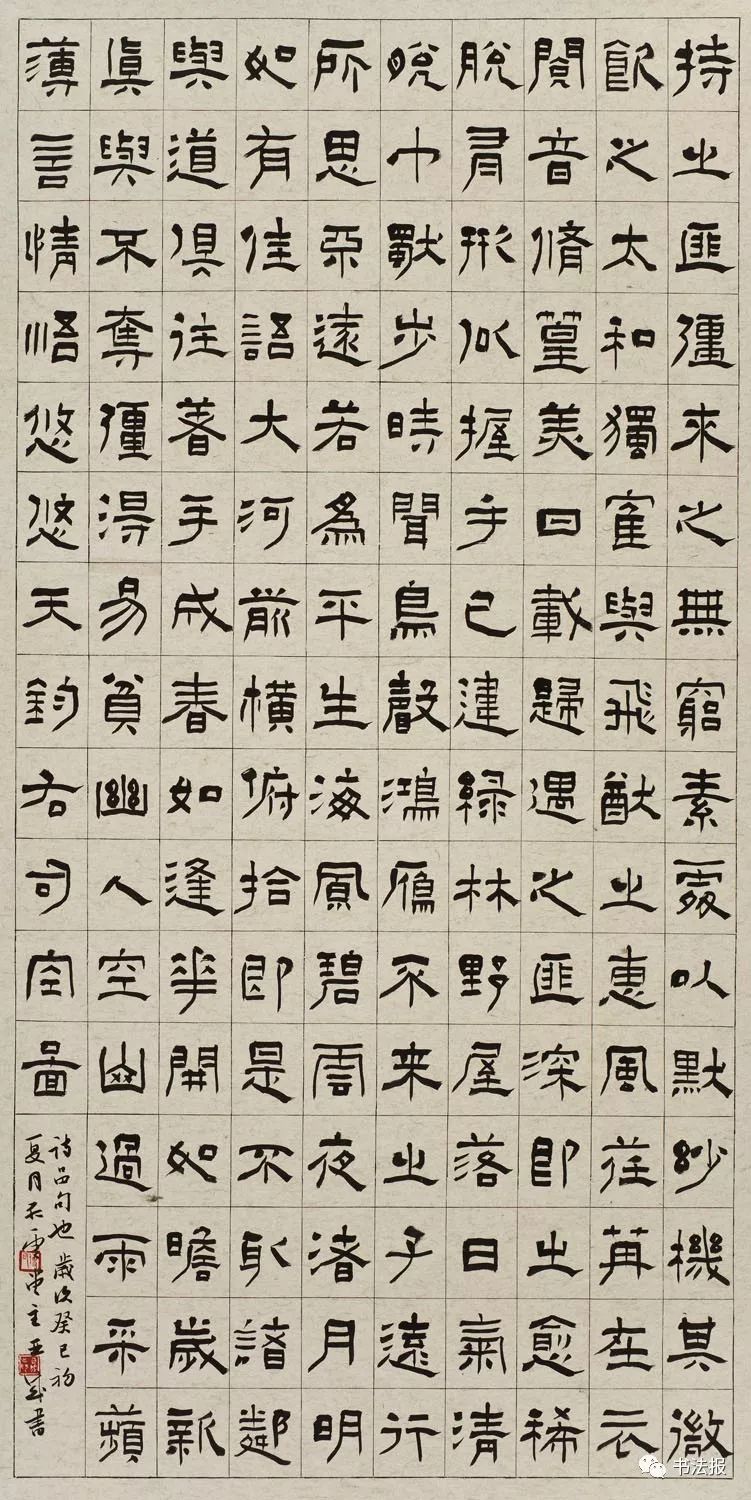 持之匪彊來之無窮素處以默妙機其微
飲之太和獨隺與飛猷之惠風荏苒在衣
閱音脩篁美曰載歸遇之匪深即之愈稀
脫有形似握手已違綠林野屋落日氣清
晚巾獣步時聞鳥聲鴻雁不来之子遠行
所思不遠若為平生海風碧雲夜渚月明
如有佳語大河前橫俯拾即是不取諸鄰
與道俱往著手成春如逢花開如瞻歲新
真與不奪彊得易貧幽人空山過雨采蘋
薄言情悟悠悠天鈞右司空圖
詩品句也歲次癸巳初
夏月書
书法报